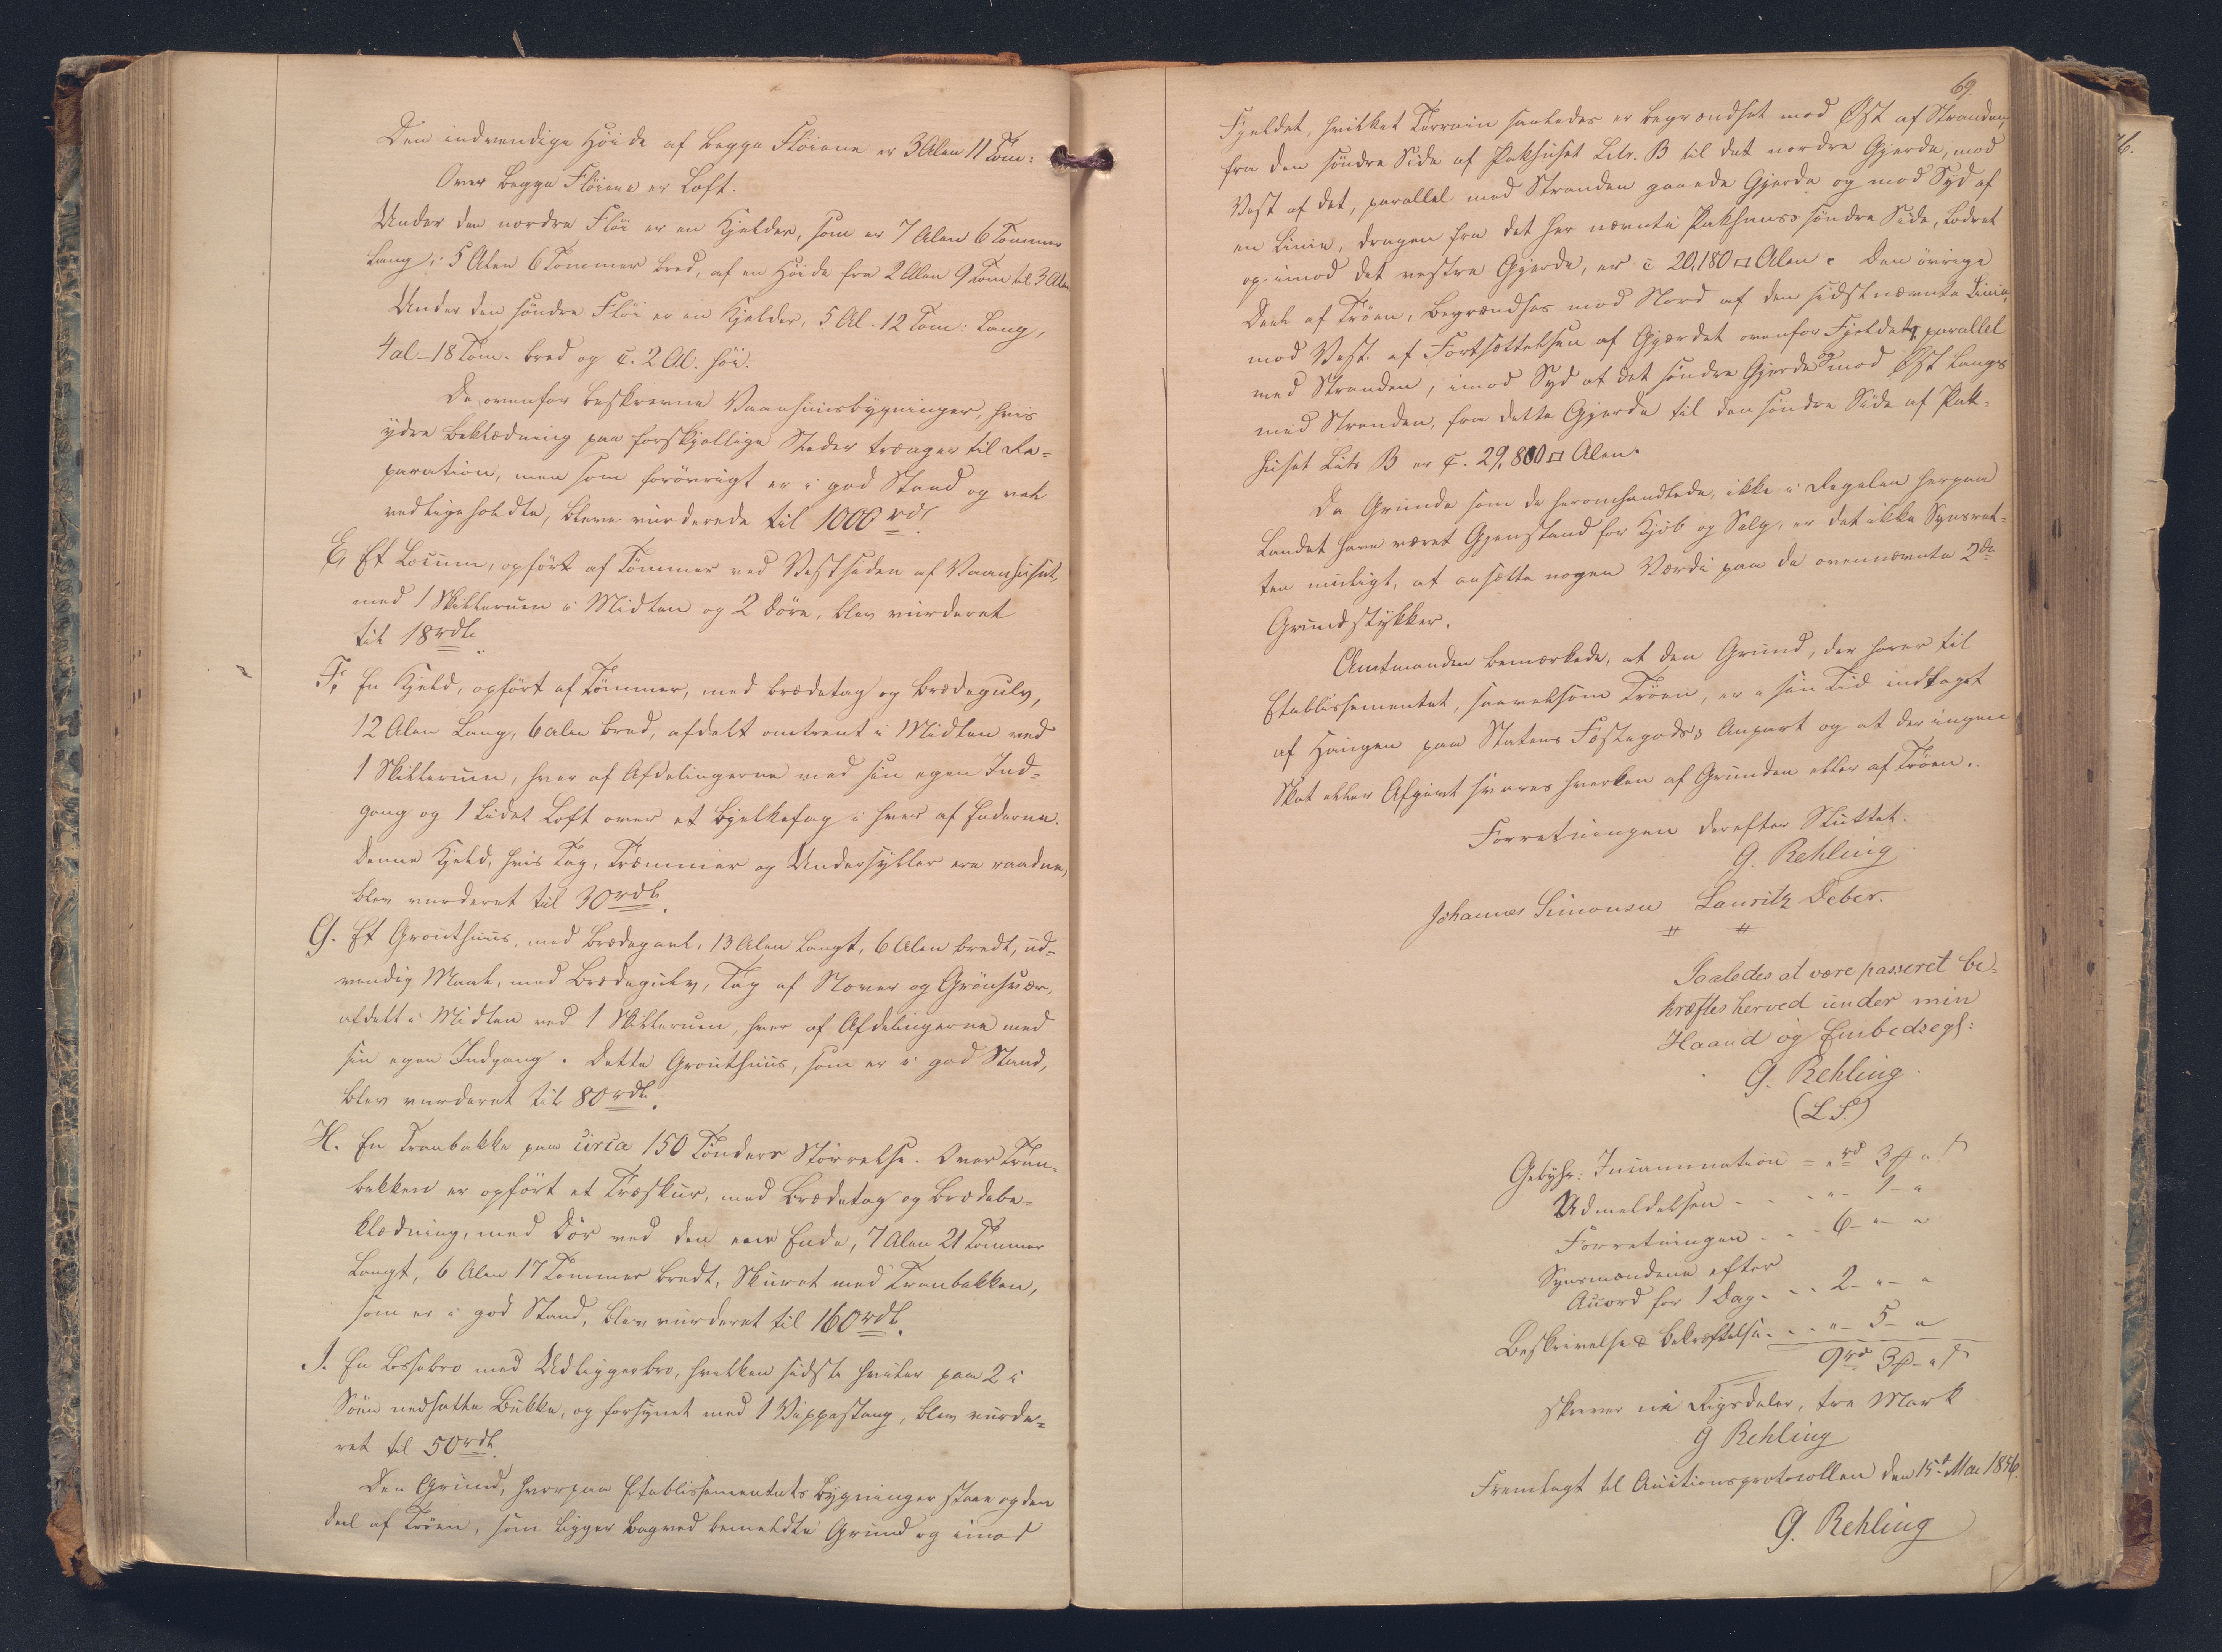 Den indvendige Höide af begge Flöiene er 3 Alen 11 Tom:
Over begge Flöiene er Loft.
Under den nordre Flöi er en Kjelder, som er 7 Alen 6 Tommer
lang, 5 Alen 6 Tommer bred, af en Höide fra 2 Alen 9 Tom til 3 Alen
Under den söndre Flöi er en Kjelder, 5 Al. 12 Tom: lang,
4 al - 18 Tom. bred og c. 2 Al. höi.
De ovenfor beskrevne Vaanhuusbygninger, hvis
ydre Beklædning paa forskjellige Steder trænger til Re=
paration, men som forövrigt er i god Stand og vel
vedligeholdte, bleve vurderede til 1000 rdl.
E, Et Locum, opfört af Tömmer ved Vestsiden af Vaanhuset,
med 1 Skillerum i Midten og 2 Döre, blev vurderet
til 18 rdl.
F, En Hjeld, opfört af Tömmer, med Brædetag og Brædegulv,
12 Alen lang, 6 alen bred, afdelt omtrent i Midten ved
1 Skillerum, hver af Afdelingerne med sin egen Ind=
gang og 1 lidet Loft over et Bjelkefag i hver af Enderne.
Denne Hjeld, hvis Tag, Træmmer og Undersyller ere raadne,
blev vurderet til 30 rdl.
G. Et Grouthuus, med Brædegavl, 13 Alen langt, 6 Alen bredt, ud=
vendig Maal, med Brædegulv, Tag af Næver og Grönsvær,
afdelt i Midten ved 1 Skillerum, hver af Afdelingerne med
sin egen Indgang. Dette Grouthuus, som er i god Stand,
blev vurderet til 80 rdl.
H. En Tranbakke paa circa 150 Tönders Störrelse. Over Tran=
bakken er opfört et Træskur, med Brædetag og Brædebe=
klædning, med Dör ved den ene Ende, 7 Alen 21 Tommer
langt, 6 Alen 17 Tommer bredt. Skuret med Tranbakken,
som er i god Stand, blev vurderet til 160 rdl.
I. En Lossebro med Udliggerbro, hvilken sidste hviler paa 2 i
Söen nedsatte Bukke, og forsynet med 1 Vippestang, blev vurde=
ret til 50 rdl.
Den Grund, hvorpaa Etablissementets Bygninger staae og den
deel af Tröen, som ligger bagved bemeldte Grund og imod
69.
Fjeldet, hvilket Terrain saaledes er begrændset mod Öst af Stranden,
fra den söndre Side af Pakhuset Litr. B til det nordre Gjerde, mod
Vest af det, parallel med Stranden gaaende Gjerde og mod Syd af
en Linie, dragen fra det her nævnte Pakhuses söndre Side, lodret
op imod det vestre Gjerde, er c 20,180 □ Alen. Den övrige
Deel af Tröen, begrændset mod Nord af den sidstnævnte Linie,
mod Vest af Fortsættelsen af Gjærdet ovenfor Fjeldet, parallel
med Stranden, imod Syd af det söndre Gjerde og mod Öst langs
med Stranden, fra dette Gjerde til den söndre Side af Pak=
huset Litr B er c. 29,800 □ Alen.
Da Grunde som de heromhandlede, ikke i Regelen herpaa
Landet have været Gjenstand for Kjöb og Salg, er det ikke Synsret=
ten muligt, at ansætte nogen Værdi paa de ovennævnte 2de
Grundstykker.
Amtmanden bemærkede, at den Grund, der hörer til
Etablissementet, saavelsom Tröen, er i sin Tid indtaget
af Haugen paa Statens Fæstegods's Anpart og at der ingen
Skat eller Afgivt svares hverken af Grunden eller af Tröen.
Forretningen derefter Sluttet.
G. Rehling
Johannes Simonsen Lauritz Deber.
Saaledes at være passeret be=
kræftes herved under min
Haand og Embedsegl:
G. Rehling.
(L S.)
Gebyhr: Incamination = " rd 3 ℔ " ß
Udmeldelsen - - - " - 1 - "
Forretningen - - - 6 - " - "
Synsmændene efter
Accord for 1 Dag - - - 2 - " - "
Beskrivelse & Bekræftelse - - - " - 5 - "
9 rd 3 ℔ - " ß
skriver ni Rigsdaler, tre Mark
G Rehling
Fremlagt til Auctionsprotocollen den 15de Mai 1856.
G. Rehling